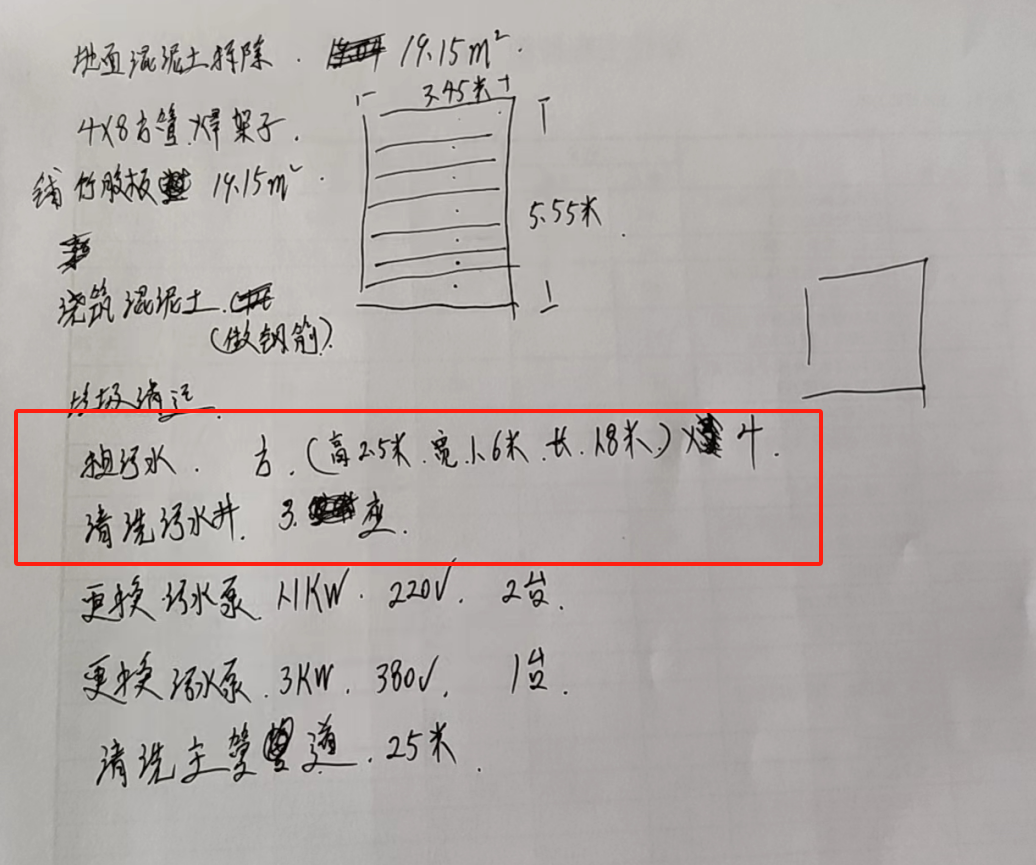 地面混泥土拆除. 19.15m².
3.45米
4X8方管焊架子.
铺竹胶板 19.15m².
5.55米.
浇筑混泥土.
(做钢筋).
垃圾清运.
抽污水. 方.(高2.5米.宽1.6米.长.1.8米.)X 4.
清洗污水井. 3. 座.
更换污水泵 1.1KW. 220V. 2台.
更换污水泵.3KW. 380V. 1台.
清洗主管道.25米.